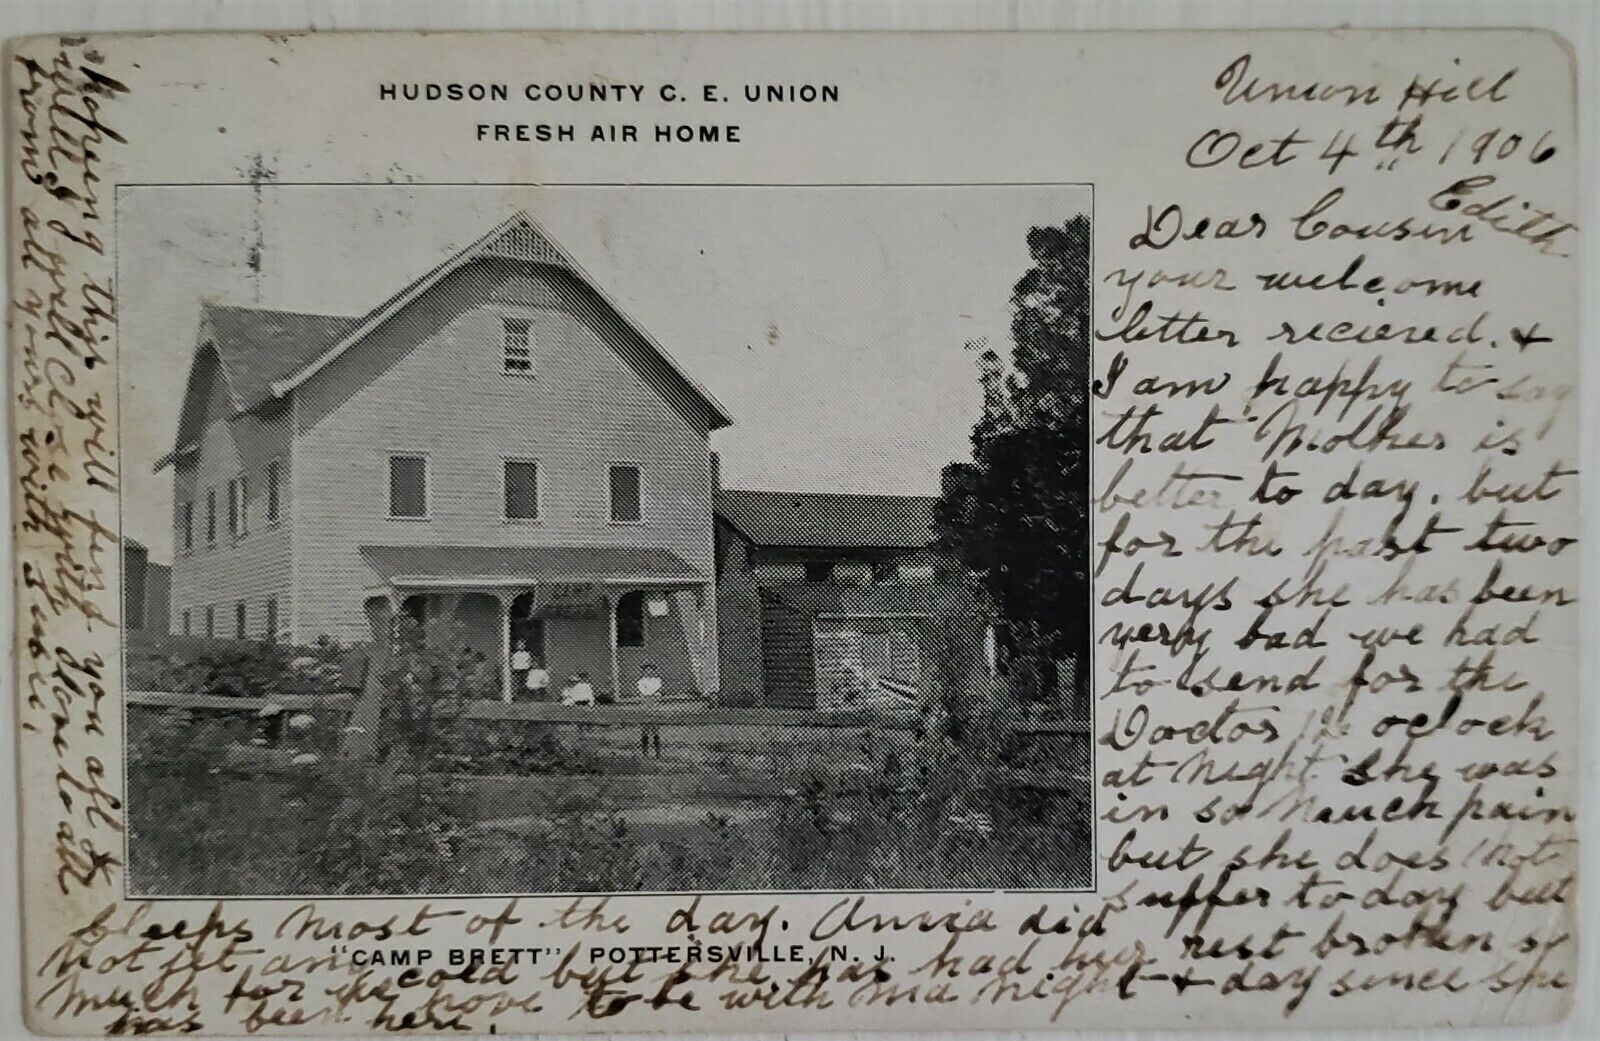 HUDSON COUNTY C. E. UNION
FRESH AIR HOME
Union Hill
Oct 4th 1906
Dear Cousin Edith
your welcome
letter reciered. +
I am happy to say
that Mother is
better to day. but
for the past two
days she has been
very bad we had
to send for the
Doctor 12 oclock
at Night she was
in so Much pain
but she does Not
suffer to day but
sleeps Most of the day. Annia did
Not get any cold but she has had her rest broken so
Much for we have to be with Ma Night + day since she
has been here.
"CAMP BRETT" POTTERSVILLE, N. J.
hoping this will find you all
will I will Close with love to all
from all yours with